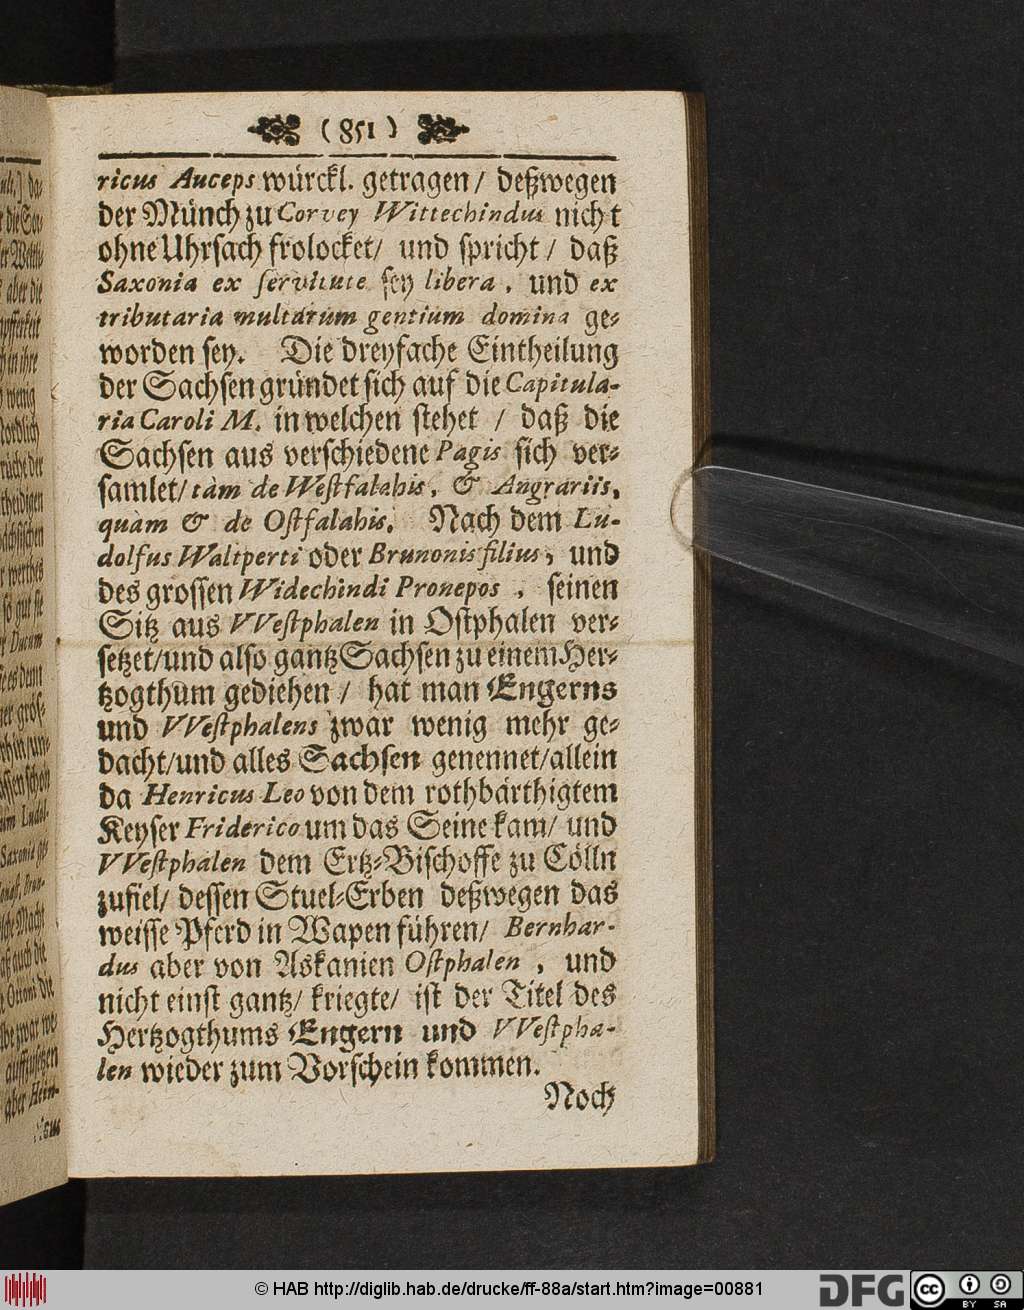 ( 851 )
ricus Auceps würckl. getragen / deßwegen
der Münch zu Corvey Wittechindus nicht
ohne Uhrsach frolocket / und spricht / daß
Saxonia ex servitute sey libera, und ex
tributaria multarum gentium domina ge-
worden sey. Die dreyfache Eintheilung
der Sachsen gründet sich auf die Capitula-
ria Caroli M. in welchen stehet / daß die
Sachsen aus verschiedene Pagis sich ver-
samlet / tàm de Westfalahis, & Angrariis,
quàm & de Ostfalahis. Nach dem Lu-
dolfus Waltperti oder Brunonis filius, und
des grossen Widechindi Pronepos, seinen
Sitz aus VVestphalen in Ostphalen ver-
setzet / und also gantz Sachsen zu einem Her-
tzogthum gediehen / hat man Engerns
und VVestphalens zwar wenig mehr ge-
dacht / und alles Sachsen genennet / allein
da Henricus Leo von dem rothbärthigtem
Keyser Friderico um das Seine kam / und
VVestphalen dem Ertz-Bischoffe zu Cölln
zufiel / dessen Stuel-Erben deßwegen das
weisse Pferd in Wapen führen / Bernhar-
dus aber von Askanien Ostphalen, und
nicht einst gantz / kriegte / ist der Titel des
Hertzogthums Engern und VVestpha-
len wieder zum Vorschein kommen.
Noch
© HAB http://diglib.hab.de/drucke/ff-88a/start.htm?image=00881
DFG
cc BY SA